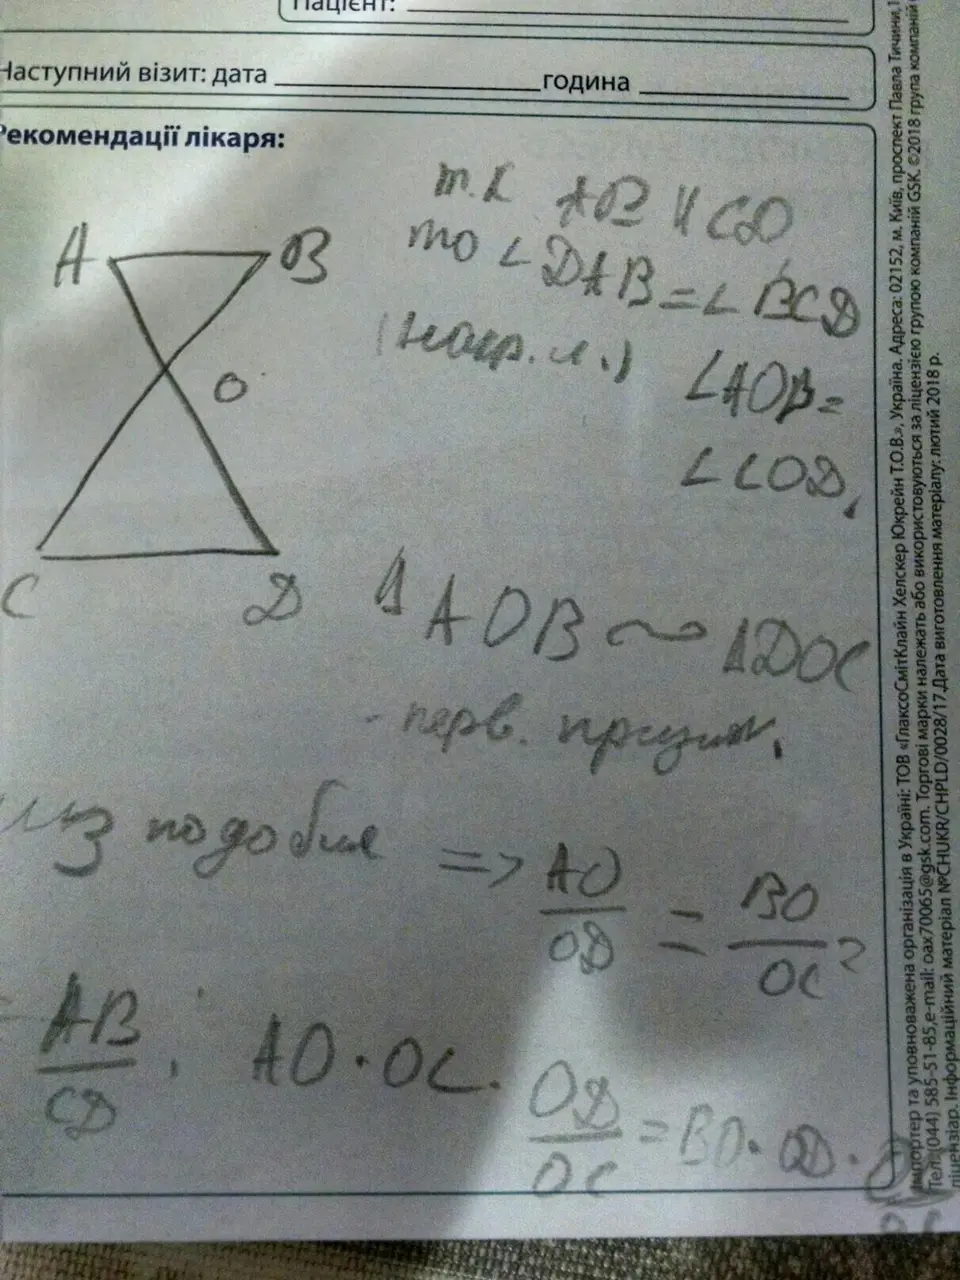 Пацієнт:
Наступний візит: дата година
Рекомендації лікаря:
т.к АВ || CD
A B
то ∠DAB = ∠BCD
(накр. л.)
∠AOB =
∠COD,
O
C D
Δ AOB ~ ΔDOC
- перв. признак.
из подобия => AO/OD = BO/OC =
= AB/CD. AO · OC · OD/OC = BO · OD ·
Імпортер та уповноважена організація в Україні: ТОВ «ГлаксоСмітКлайн Хелскер Юкрейн Т.О.В.», Україна. Адреса: 02152, м. Київ, проспект Павла Тичини,
Тел.:(044) 585-51-85,e-mail: oax70065@gsk.com. Торгові марки належать або використовуються за ліцензією групою компаній GSK. ©2018 група компаній
ліцензіар. Інформаційний матеріал №CHUKR/CHPLD/0028/17.Дата виготовлення матеріалу: лютий 2018 р.